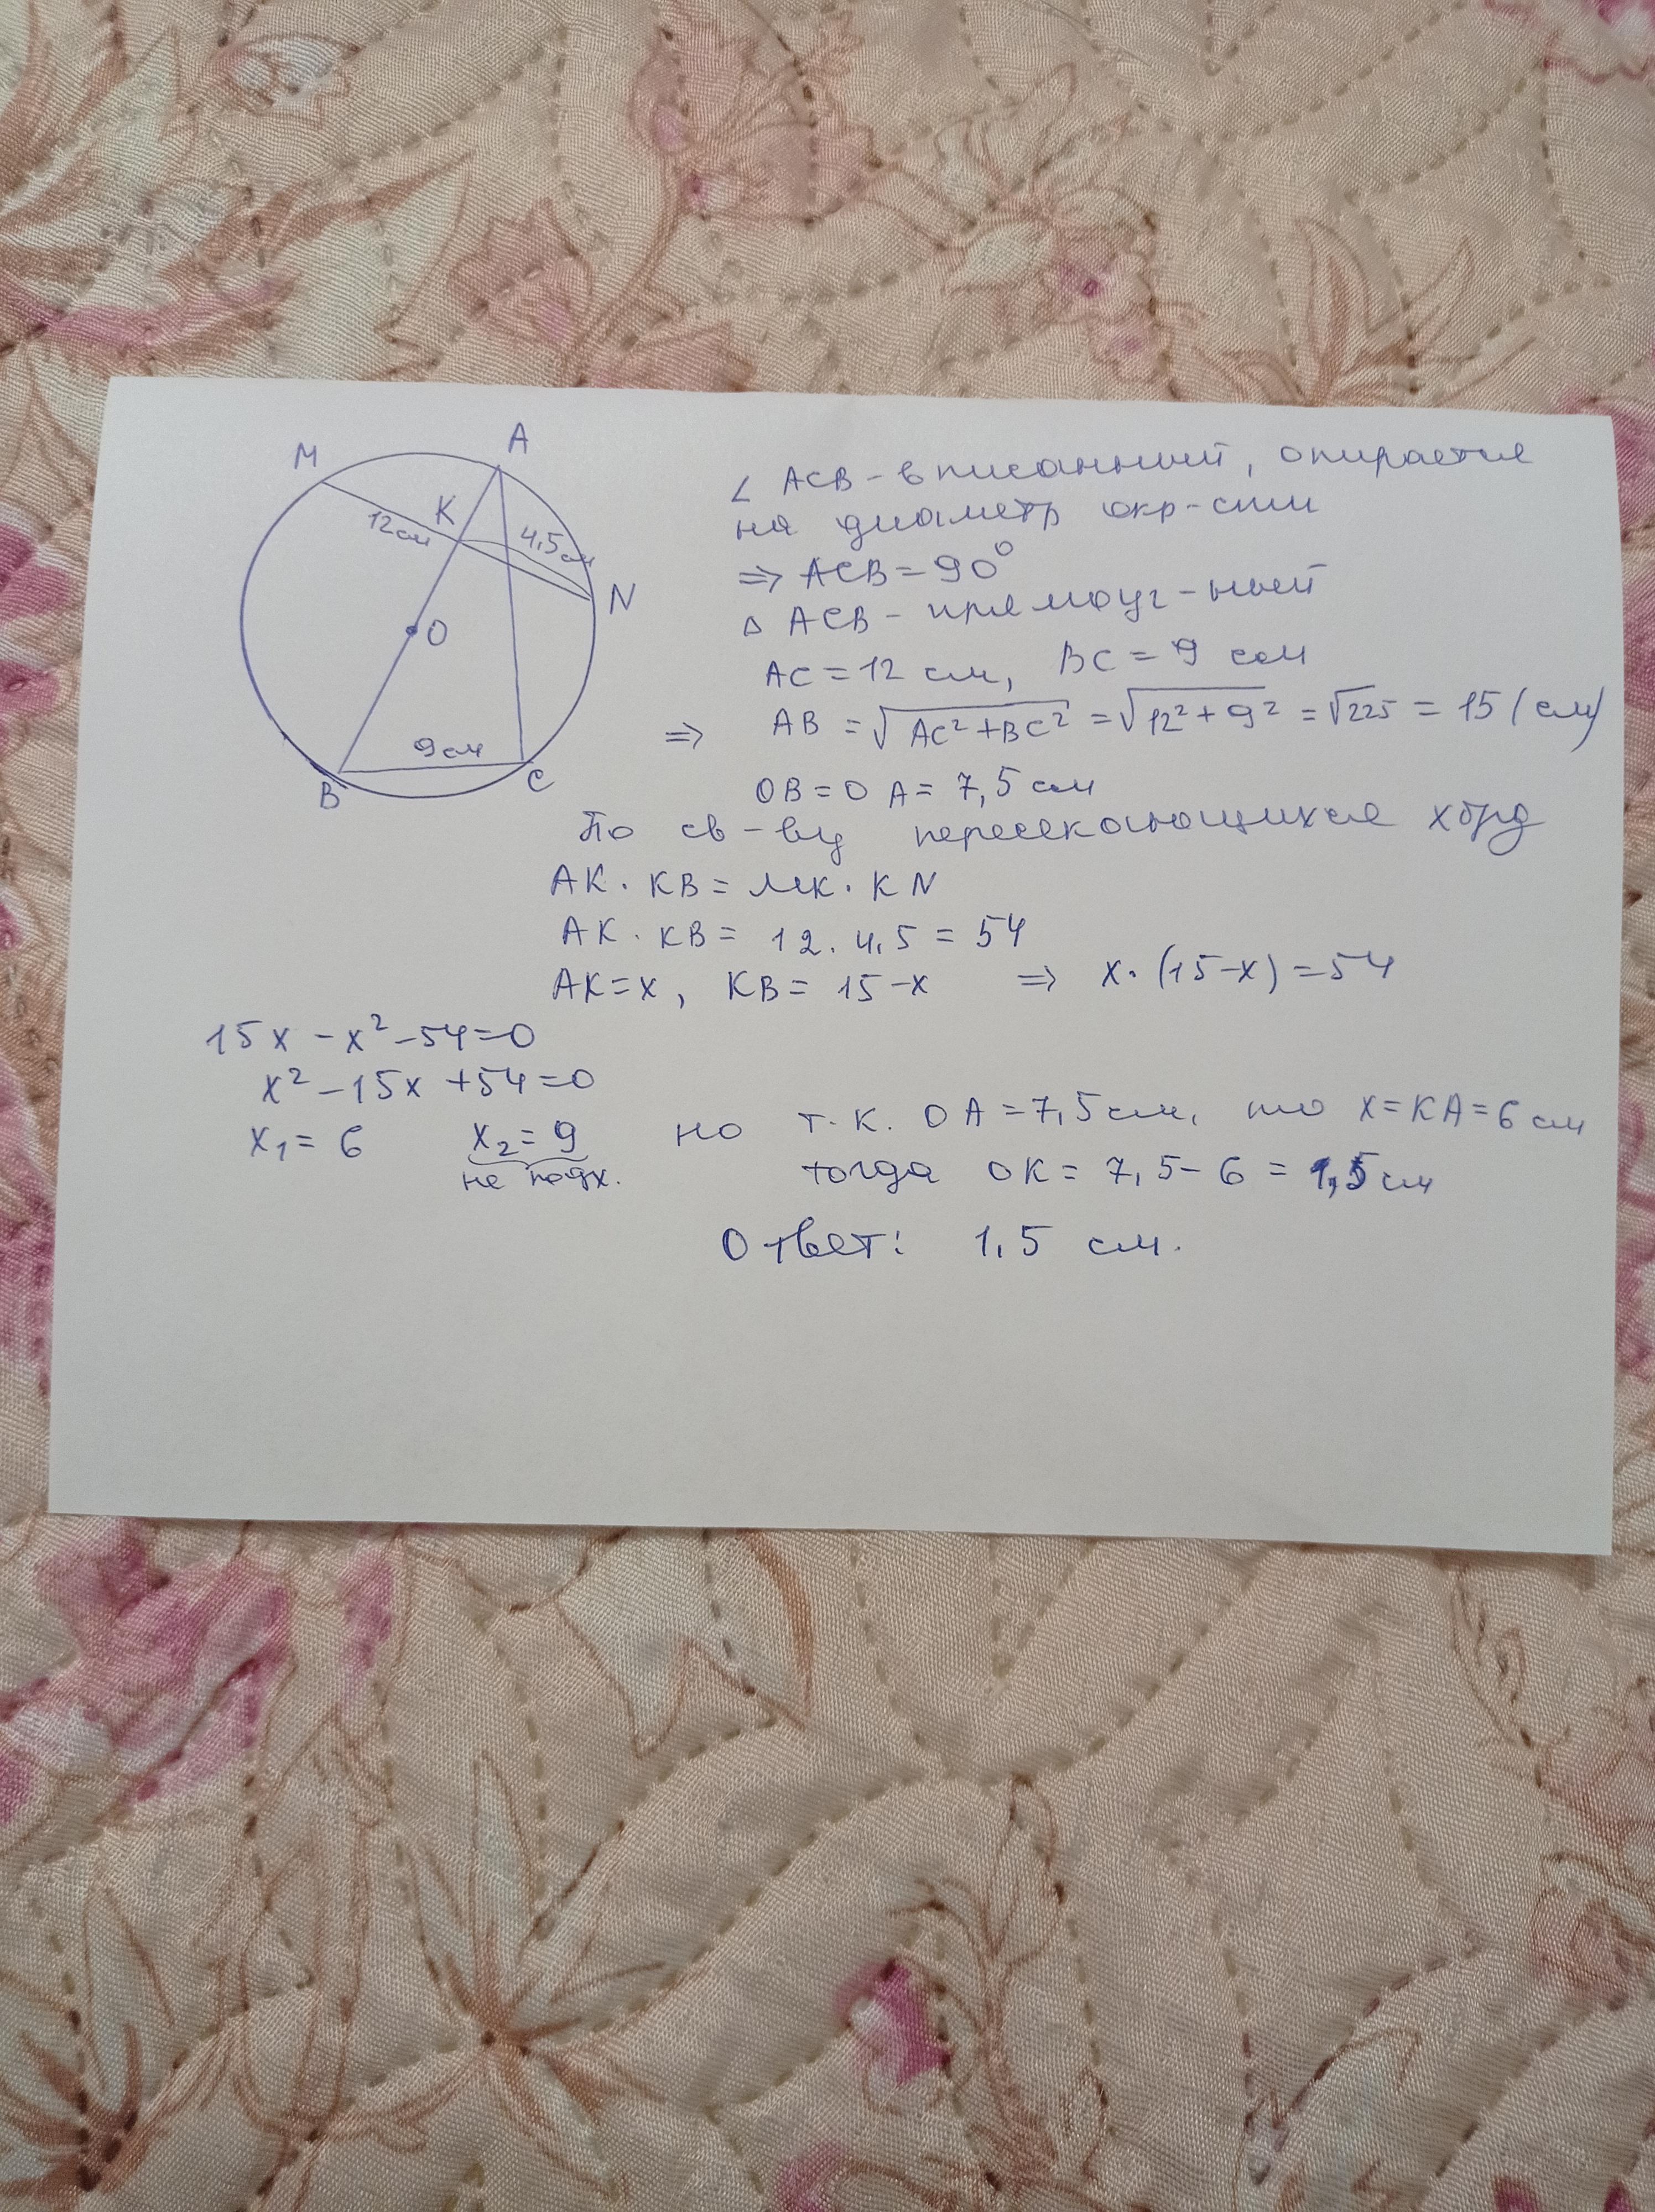 M
A
K
12см
4,5см
N
O
9см
B
C
∠ ACB - вписанный, опирается
на диаметр окр-сти
=> ACB = 90°
Δ ACB - прямоуг-ный
AC = 12 см, BC = 9 см
=> AB = √AC² + BC² = √12² + 9² = √225 = 15 (см)
OB = OA = 7,5 см
По св-ву пересекающихся хорд
AK · KB = MK · KN
AK · KB = 12 · 4,5 = 54
AK = x, KB = 15 - x => x · (15 - x) = 54
15x - x² - 54 = 0
x² - 15x + 54 = 0
x₁ = 6 x₂ = 9 но т.к. OA = 7,5 см, то x = KA = 6 см
не подх. тогда OK = 7,5 - 6 = 1,5 см
Ответ: 1,5 см.